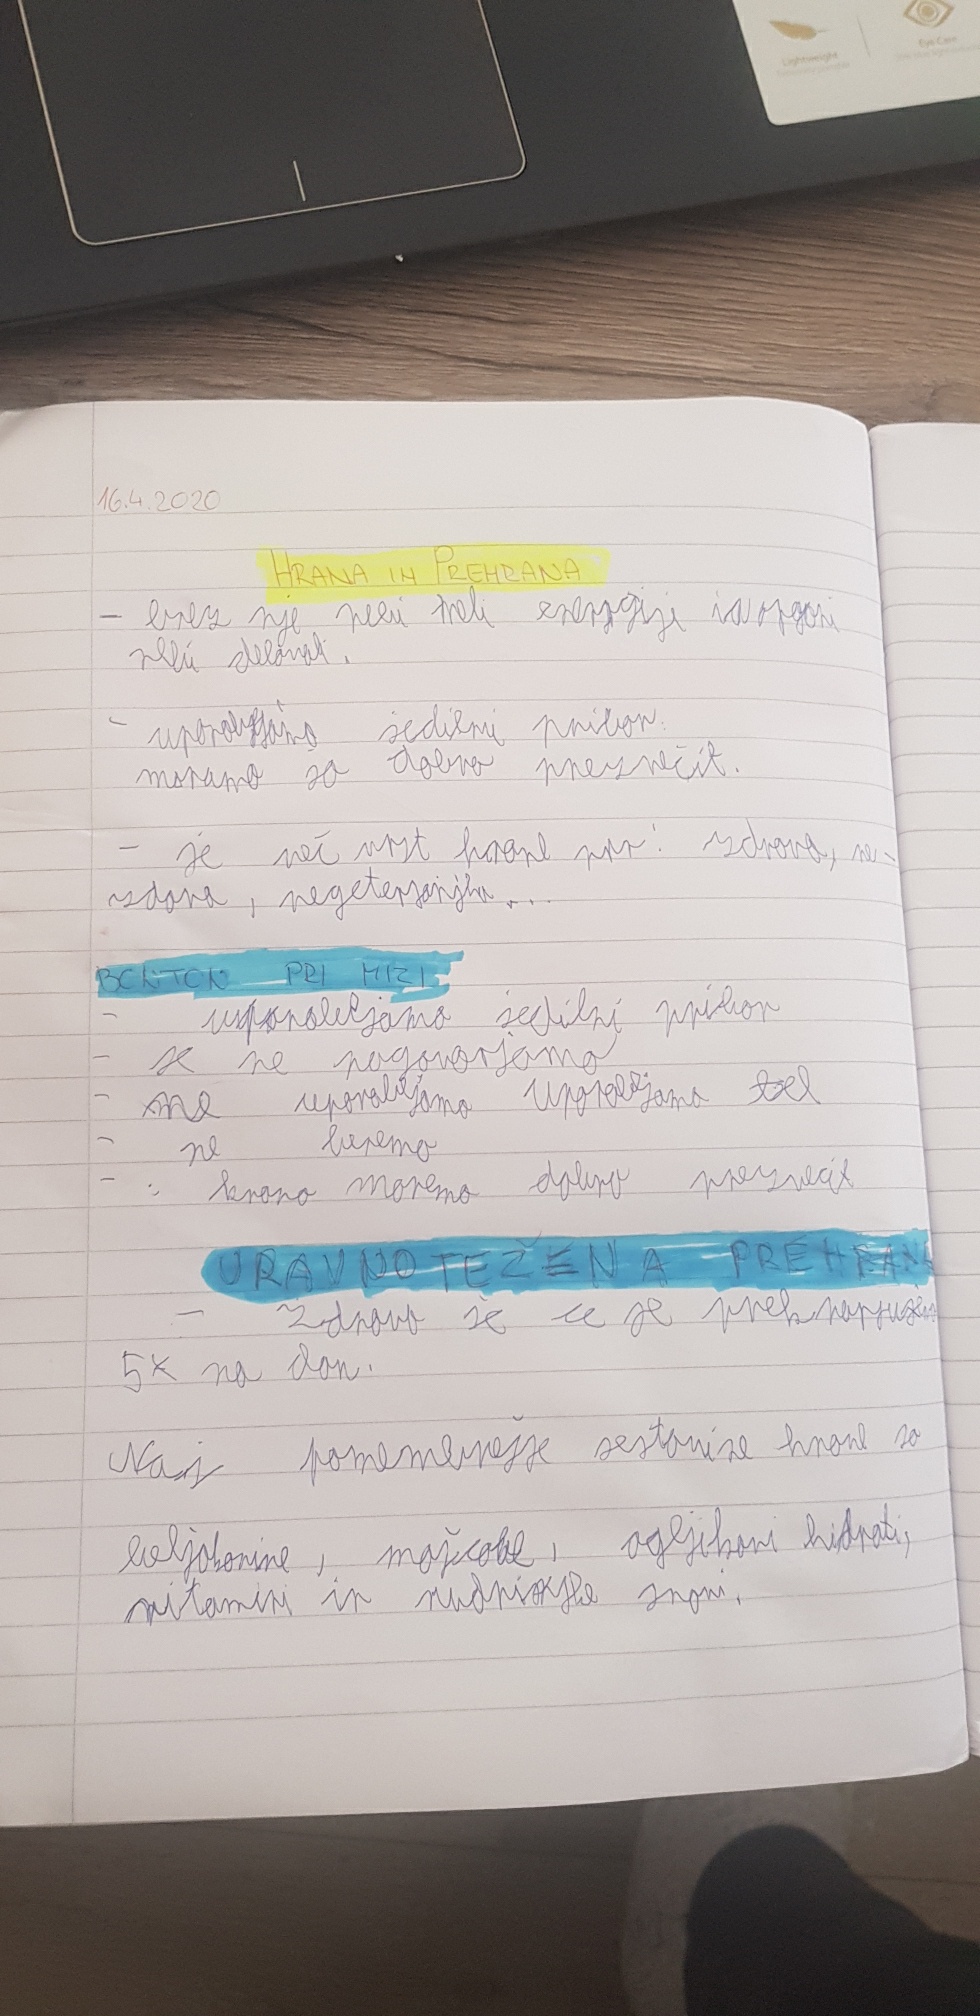 Lightweight
Eye Care
16.4.2020
HRANA IN PREHRANA
- brez nje nebi meli energije in organi
nebi delovali.
- uporabljamo jedilni pribor.
moramo jo dobro prezvečit.
- je več vrst hrane npr: zdrava, ne-
zdava, vegeterjanjska...
BONTON PRI MIZI
- uporabljamo jedilni pribor
- se ne pogovorjamo
- ne uporabljamo uporabljamo tel
- ne beremo
- : hrano moremo dobro prezvečit
URAVNOTEŽENA PREHRANA
- Zdravo je ce je
5x na dan.
Naj pomembnejše sestavine hrane so
beljakovine, maščobe, ogljikovi hidrati,
vitamini in rudninske snovi.